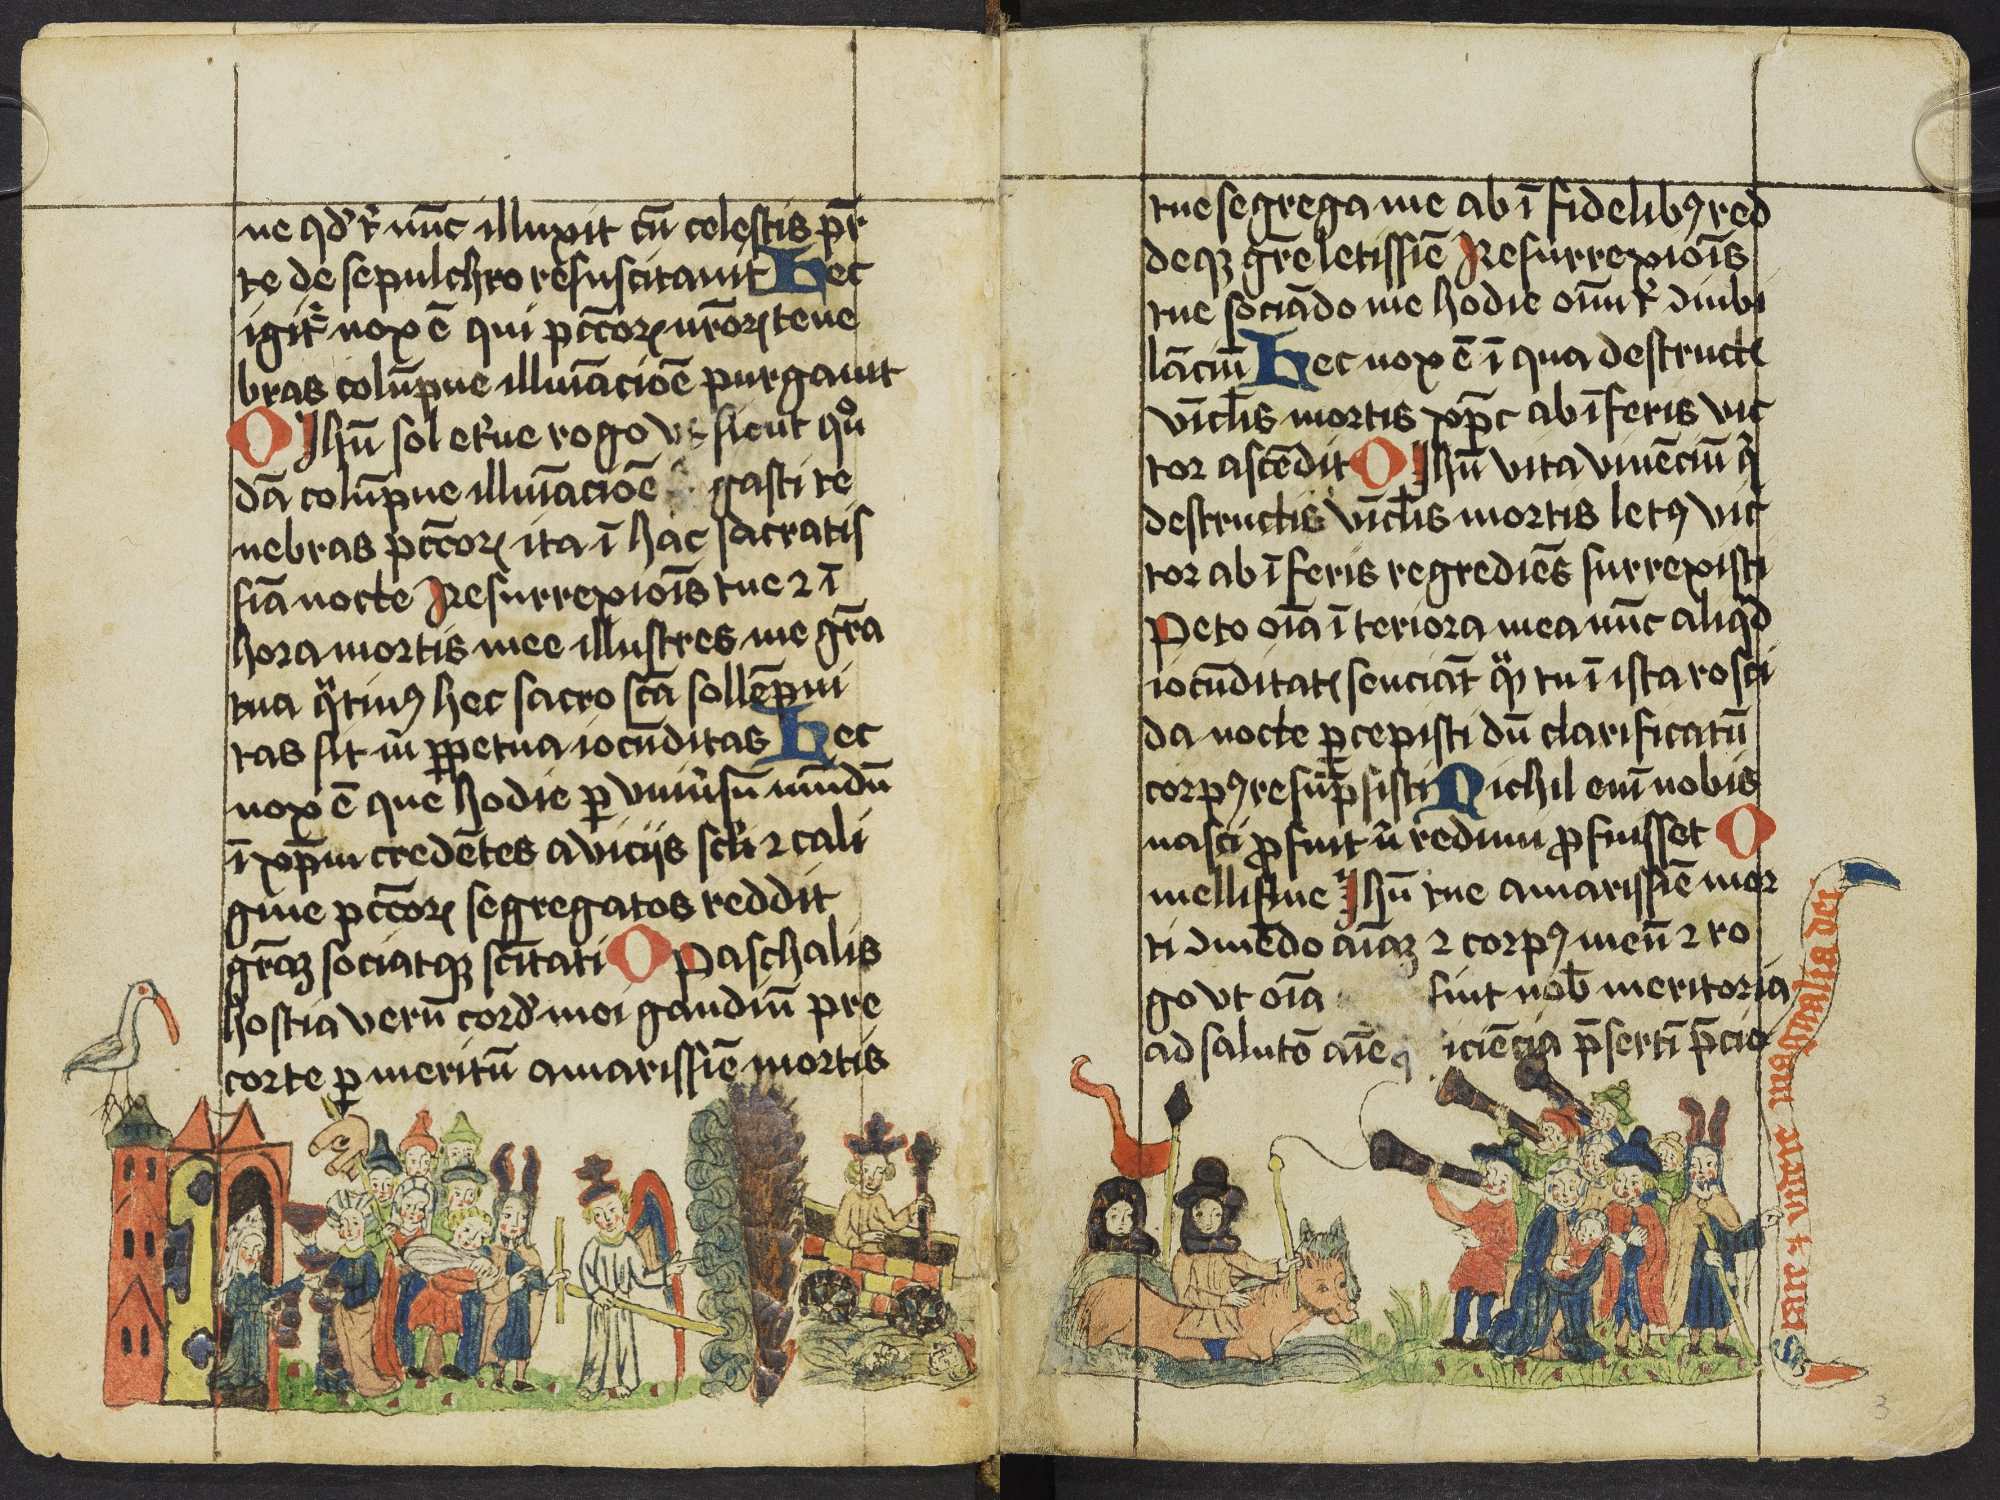 ne qd' r̄ nūc illuxit cū celestis pr̄
te de sepulchro resuscitauit Hec
igit' nox ē qui pcc̄oꝝ nr̄oꝝ tene
bras colūpne illuīacioē purgauit
O Jhū sol et'ne rogo vt sicut qn̄
dā colūpne illuīacioē gasti te
nebras pcc̄oꝝ ita ī hac sacratis
siā nocte Resurrexiois̄ tue ⁊ ī
hora mortis mee illustres me gr̄a
tua q̈tinꝰ hec sacro sct̄a sollēpni
tas sit m̄ ꝑpetua iocūditas Hec
nox ē que hodie ꝑ vniu'sū mūdū
ī xp̄m credētes a viciis scl'i ⁊ cali
gine pcc̄oꝝ segregatos reddit
gr̄aꝫ sociatqꝫ scīt̄ati O Paschalis
hostia verū cord' mei gaudiū pre
corte ꝑ meritū amarissiē mortis
tue segrega me ab īfidelibꝰ red
deqꝫ gr̄e letissiē Resurrexiois̄
tue sociādo me hodie oīm r̄ Jubi
lāciū Hec nox ē ī qua destructꝭ
vīcl̄is mortis xp̄c ab īferis vic
tor ascēdit O Jhū vita viuēciū q̄
destructis vīcl̄is mortis letꝰ vic
tor ab īferis regrediēs surrexisti
Peto oīa īteriora mea nūc aliqd̄
iocūditatꝭ senciāt q̄ tu ī ista rosci
da nocte ꝑcepisti dū clarificatū
corpꝰ resūpsisti Nichil enī nobis
nasci ꝓfuit n̄ redimi ꝓfuisset O
melliflue Jhū tue amarissiē mor
ti Jmēdo aīaꝫ ⁊ corpꝰ meū ⁊ ro
go vt oīa sint nob̄ meritoria
ad salutē aīe iciēcia p̄sertī p̄cio
State ⁊ videte magnalia dei
3